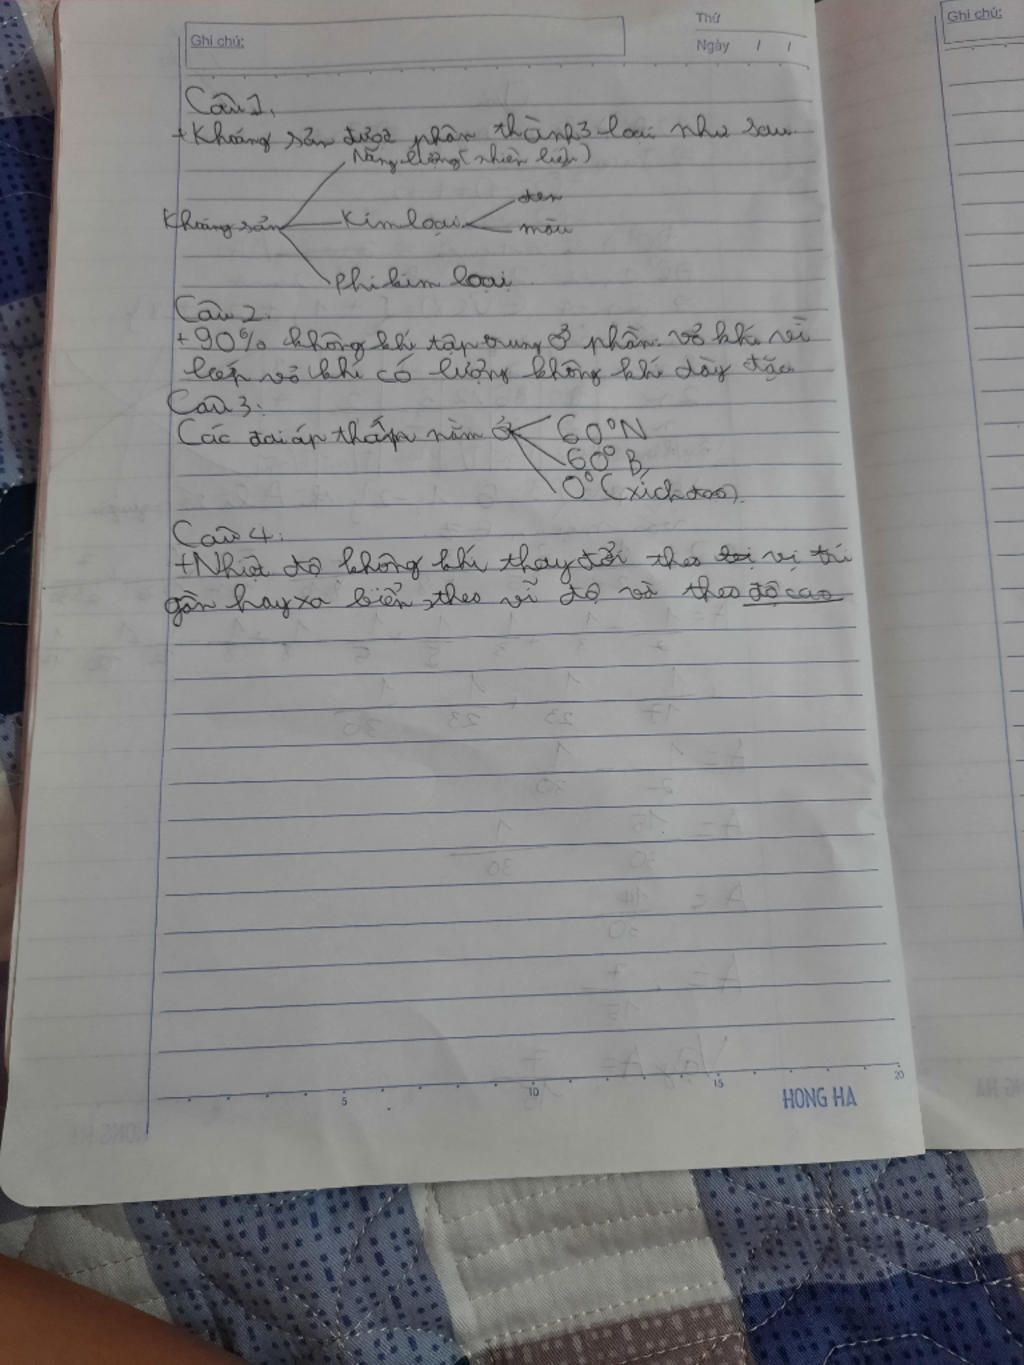 Ghi chú:
Thứ
Ngày / /
Ghi chú:
Câu 1,
+ Khoáng sản được phân thành 3 loại như sau
Năng lượng (nhiên liệu)
đen
Khoáng sản Kim loại
màu
Phi kim loại
Câu 2.
+ 90% không khí tập trung ở phần vỏ khí vì
lớp vỏ khí có lượng không khí dày đặc
Câu 3:
Các đai áp thấp nằm ở 60°N
60° B
0° (xích đạo).
Câu 4:
+ Nhiệt độ không khí thay đổi theo vị trí
gần hay xa biển, theo vĩ độ và theo độ cao
5 10 15 20
HONG HA